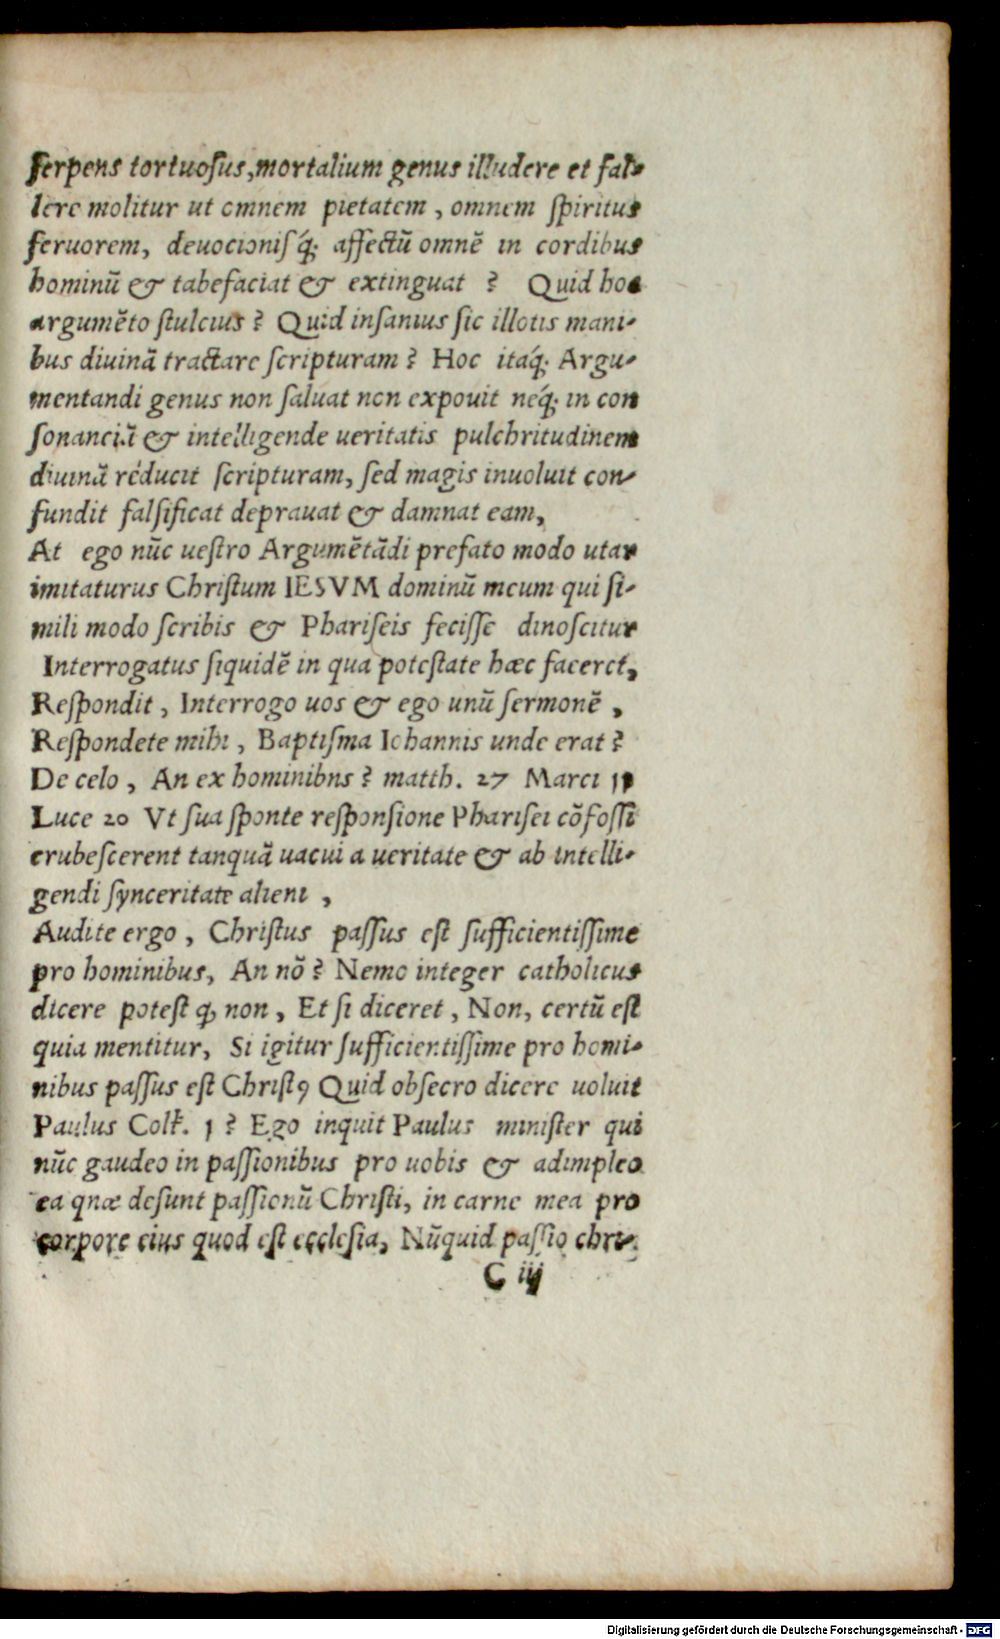 ſerpens tortuoſus, mortalium genus illudere et fal-
lere molitur ut omnem pietatem, omnem ſpiritus
feruorem, deuocioniſq́; affectū omnē in cordibus
hominū & tabefaciat & extinguat ? Quid hoc
argumēto ſtulcius ? Quid inſanius ſic illotis mani-
bus diuinā tractare ſcripturam ? Hoc itaq́; Argu-
mentandi genus non ſaluat non expouit neq́; in con
ſonanciā & intelligende ueritatis pulchritudinem
diuinā réducit ſcripturam, ſed magis inuoluit con-
fundit falſificat deprauat & damnat eam,
At ego nūc ueſtro Argumētādi prefato modo utar
imitaturus Chriſtum IESVM dominū meum qui ſi-
mili modo ſcribis & Phariſeis feciſſe dinoſcitur
Interrogatus ſiquidē in qua poteſtate hæc faceret,
Reſpondit, Interrogo uos & ego unū ſermonē,
Reſpondete mihi, Baptiſma Iohannis unde erat ?
De celo, An ex hominibns ? matth. 27 Marci 11
Luce 20 Vt ſua ſponte reſponſione Phariſei cōfoſſi
erubeſcerent tanquā uacui a ueritate & ab intelli-
gendi ſynceritate alieni,
Audite ergo, Chriſtus paſſus eſt ſufficientiſſime
pro hominibus, An nō ? Nemo integer catholicus
dicere poteſt ꝙ non, Et ſi diceret, Non, certū eſt
quia mentitur, Si igitur ſufficientiſſime pro homi-
nibus paſſus eſt Chriſtꝰ Quid obſecro dicere uoluit
Paulus Coll. 1 ? Ego inquit Paulus miniſter qui
nūc gaudeo in paſſionibus pro uobis & adimpleo
ea qnæ deſunt paſſionū Chriſti, in carne mea pro
corpore eius quod eſt eccleſia, Nūquid paſſio chri-
C iij
Digitalisierung gefördert durch die Deutsche Forschungsgemeinschaft - DFG